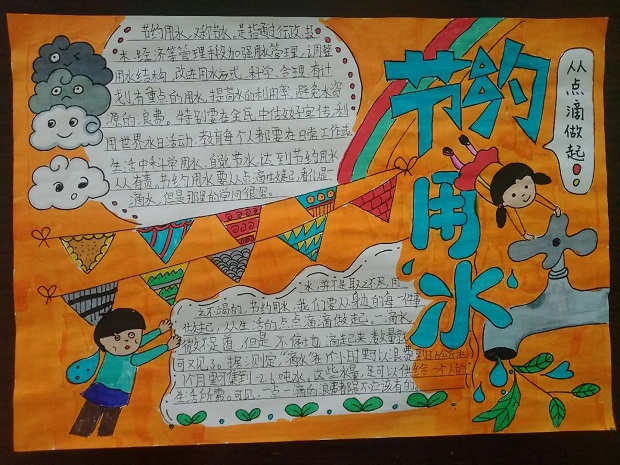 节约用水
从点滴做起
节约用水,又称节水,是指通过行政技
术、经济等管理手段加强用水管理,调整
用水结构,改进用水方式,科学、合理、有计
划、有重点的用水,提高水的利用率,避免水资
源的浪费。特别要在全民中做好宣传,利
用世界水日活动,教育每个人都要在日常工作或
生活中科学用水,自觉节水,达到节约用水
人人有责。节约用水要从点滴做起,看似是一
滴水,但是那里的学问很深。
水,并不是取之不尽,用
之不竭的,节约用水,我们要从身边的每一件事
做起,从生活的点点滴滴做起,一滴水,
微不足道,但是不停地滴起来,数量就
可观了。据测定,"滴水"在1个小时里可以浪费到3.6公斤水
1个月里可集到2.6吨水,这些水量,足可以供给一个人的
生活所需。可见,一点一滴的浪费都是不应该有的。